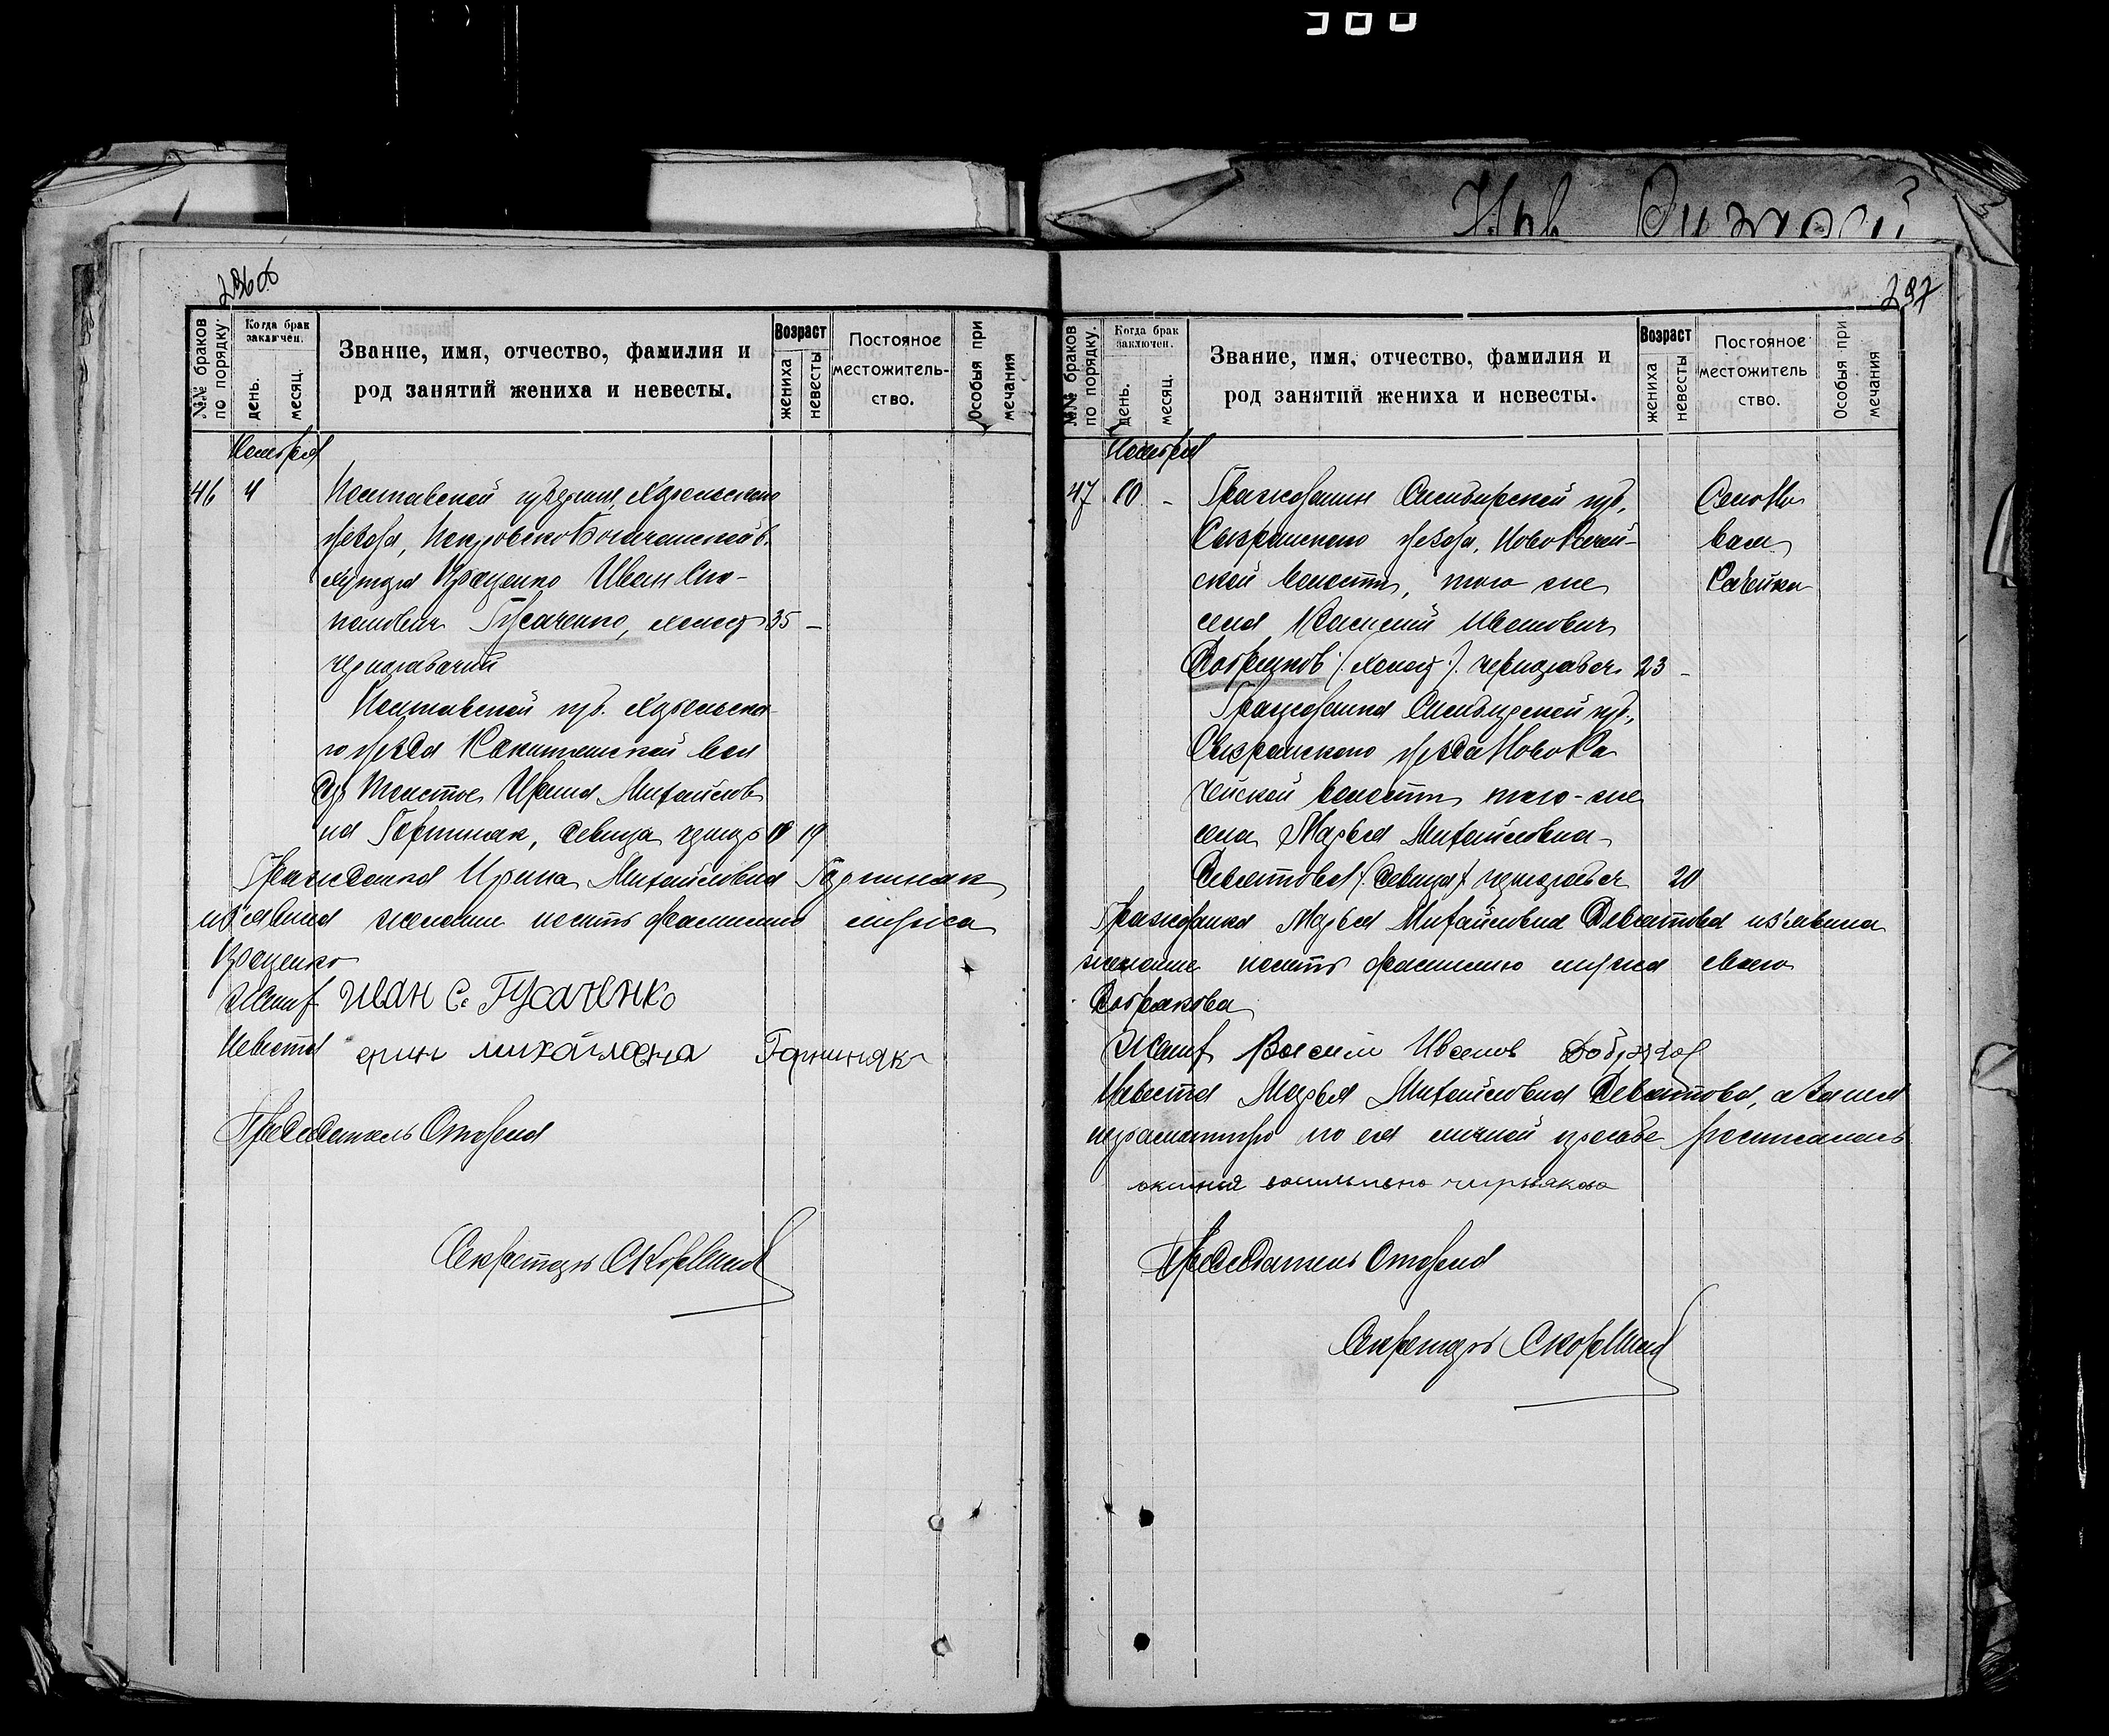 Инв
236 об
№№ браков по порядку.
Когда брак заключен.
день.
месяц.
Звание, имя, отчество, фамилия и
род занятий жениха и невесты.
Возраст
жениха
невесты
Постояное
местожитель-
ство.
Особыя при
мечания
Ноября
46 4 Полтавской губернии, Хорольского
уезда, Покровско Богачанской в.
хутора Иван Сте-
панович Гусаченко, холост 35 –
чернорабочий
Полтавской губ. Хорольска-
го уезда вол
Ирина Михайлов
на Горпиняк, девица 19
Гражданка Ирина Михайловна Горпиняк
изъявила желание носить фамилию мужа
Жених Иван С. Гусаченко
Невеста ерин михайлавна Горпиняк
Председатель Отдела
Секретарь
237
№№ браков по порядку.
Когда брак заключен.
день.
месяц.
Звание, имя, отчество, фамилия и
род занятий жениха и невесты.
Возраст
жениха
невесты
Постояное
местожитель
ство.
Особыя при
мечания
Ноября
47 10 – Гражданин Симбирской губ, Село Но
Сызранского уезда, Ново
ской волости, того же
села Василий Иванович
Добряков (холост). чернорабоч. 23 –
Гражданка Симбирской губ.,
Сызранского уезда Ново Ра
чейской волости того-же
села Марья Михайловна
Девятова (девица) чернорабоч 20
Гражданка Марья Михайловна Девятова изъявила
желание носить фамилию мужа своего
Добрякова
Жених Васили Иванов Добряков
Невеста Марья Михайловна Девятова, а за нея
неграмотную по ея личной просьбе росписалась
Председатель Отдела
Секретарь